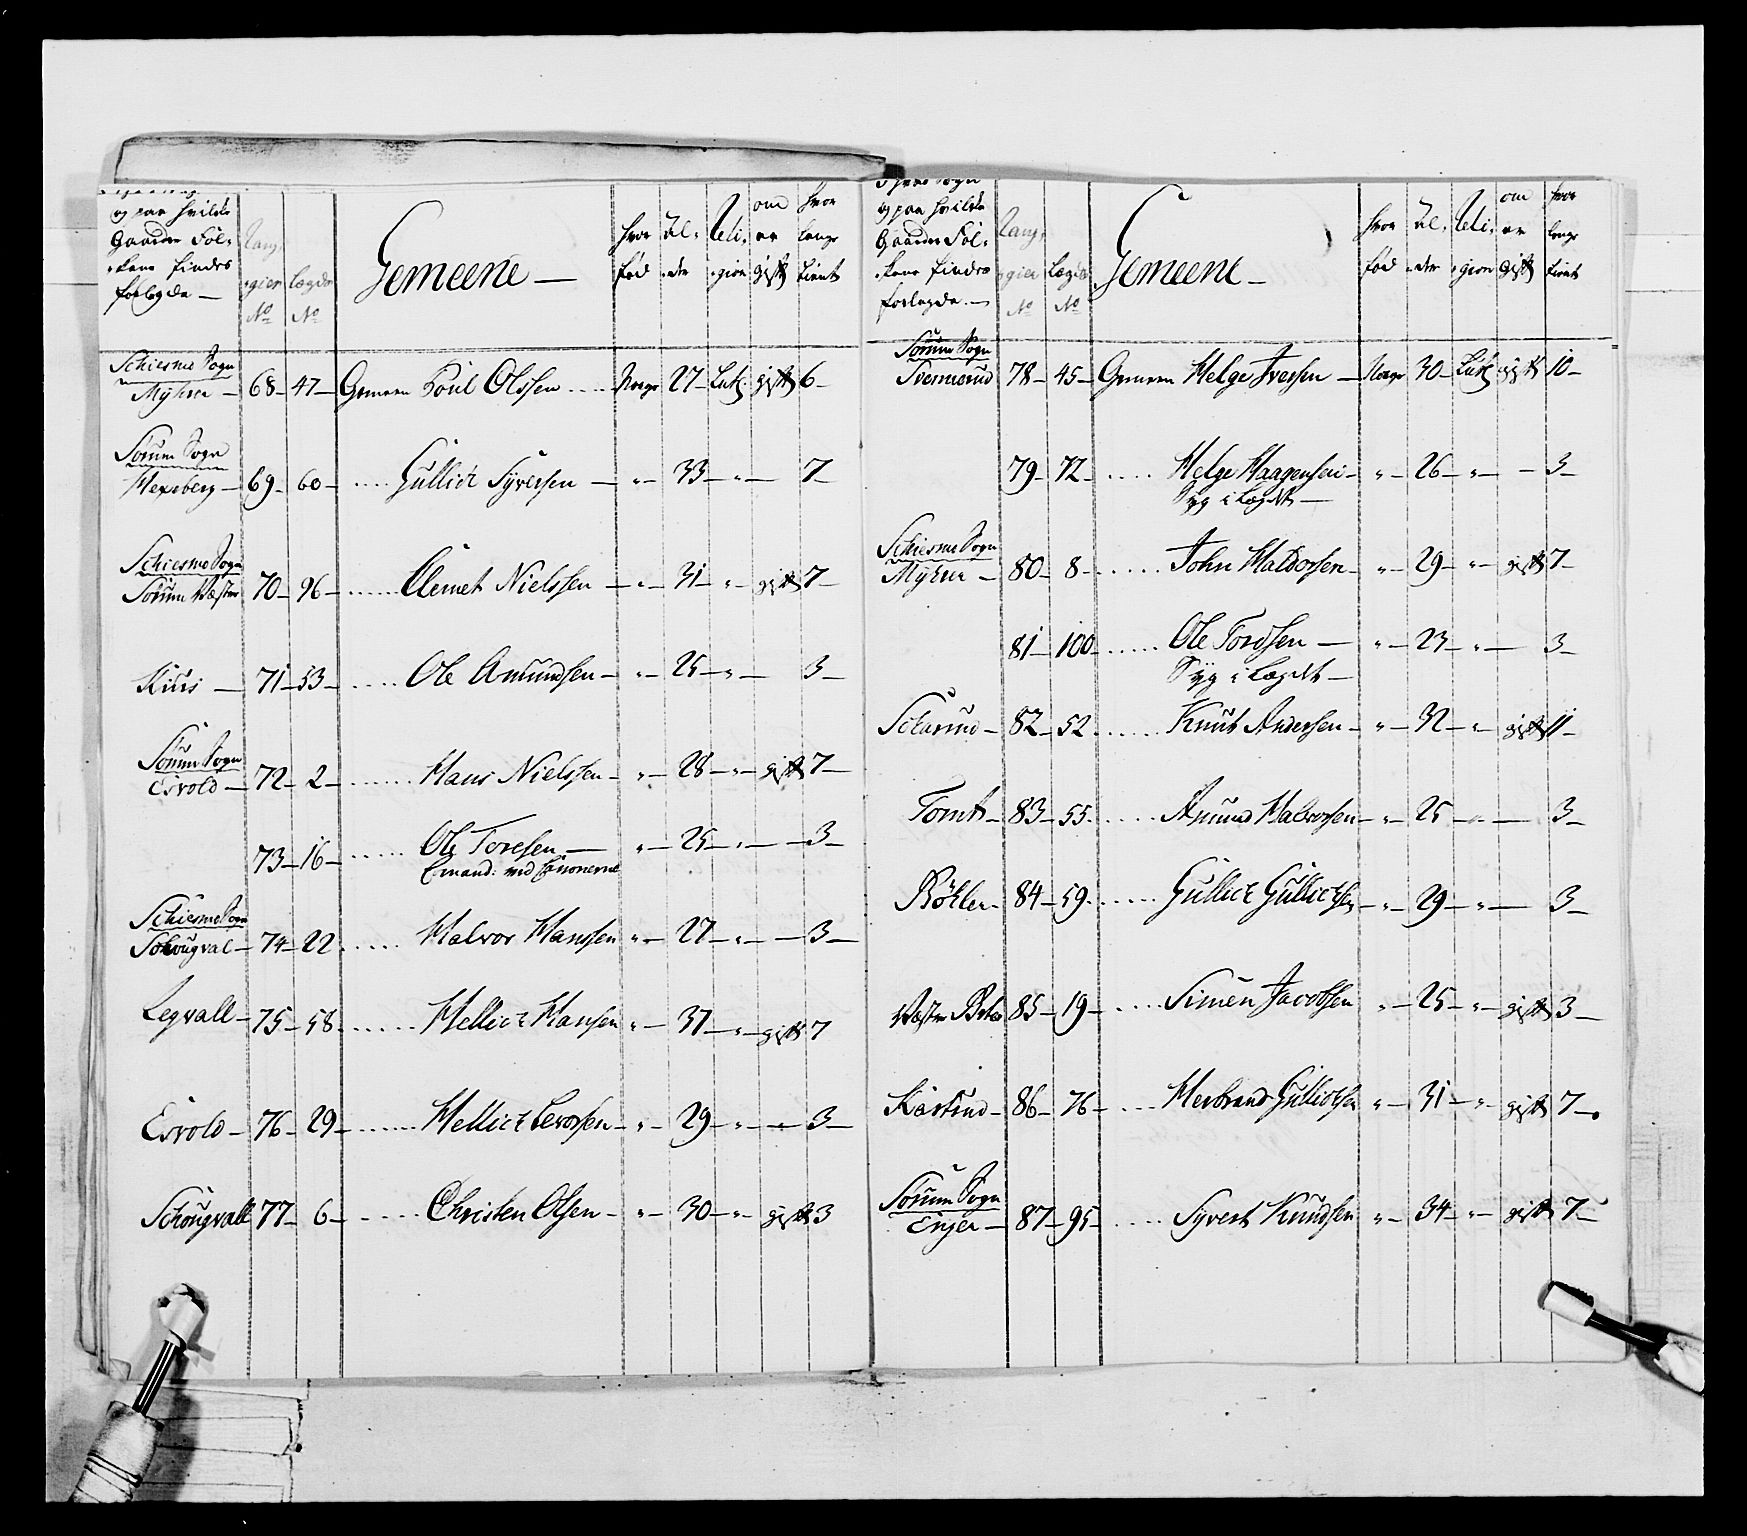 og paa hvilke
Gaarder Fol-
kene findes
forlagde —
Rang-
gier
No
Lægds
No
Gemeene —
hvor
fød
Al-
der
Reli-
gion
om
er
gift
hvor
lenge
tient
Schiesme Sogn
Myhre — 68 — 47 — Gemeen Poul Olssen .... Norge 27 — Luth. gift 6 —
Sørum Sogn
69 — 60 — .... Gullick Syversen — " — 33 — " — 7 —
Schiesme Sogn
Sørum Wæstre 70 — 96 — ...... Clemet Nielssen — " — 31 — " — gift 7 —
Kiús — 71 — 53 — ..... Ole Amundsen — " — 25 — " — 3 —
Sørum Sogn
Esvold — 72 — 2 — ....... Hans Nielssen — " — 28 — " — gift 7 —
73 — 16 — ...... Ole Toresen — " — 25 — " — 3 —
Comand: ved Canonerne
Schiesme Sogn
Schougval — 74 — 22 ...... Halvor Hanssen " — 27 — " — 3 —
Legvall — 75 — 58 ....... Hellick Hansen " — 37 — " — gift 7
Esvold — 76 — 29 — ....... Hellick Levorsen — " — 29 — " — 3 —
Schougvall 77 — 6 — ..... Christen Olsen — " — 30 — " — gift 3
og paa hvilke
Gaarder Fol-
kene findes
forlagde. —
Rang-
gier
No
Lægds
No
Gemeene —
hvor
fød
Al-
der
Reli-
gion
om
er
gift
hvor
lenge
tient
Sørum Sogn
78 — 45 — Gemeen Helge Iversen — Norge 30 — Luth gift 10 —
79 — 72 — .... Helge Haagensen — " — 26 — " — 3 —
Syg i Lægdt —
Schiesme Sogn
Myhre — 80 — 8 — ..... John Haldorsen — " — 29 — " — gift 7 —
81 — 100 — ..... Ole Tordsen — " — 23 — " — 3 —
Syg i Lægdt —
82 — 52 ...... Knut Andersen — " — 32 — " gift 11 —
Tomt — 83 — 55 ..... Amund Halvorsen — " — 25 — 3 —
Böhler — 84 — 59 ..... Gullick Gullicksen — " — 29 — " — 3 —
85 — 19 — .... Simen Jacobsen " — 25 — " — gift 3 —
86 — 76 — .... Herbrand Gullicksen " — 31 — " — gift 7 —
Sørum Sogn
Enger — 87 — 95 — .... Syvert Knudsen " — 34 — " — gift 7 —